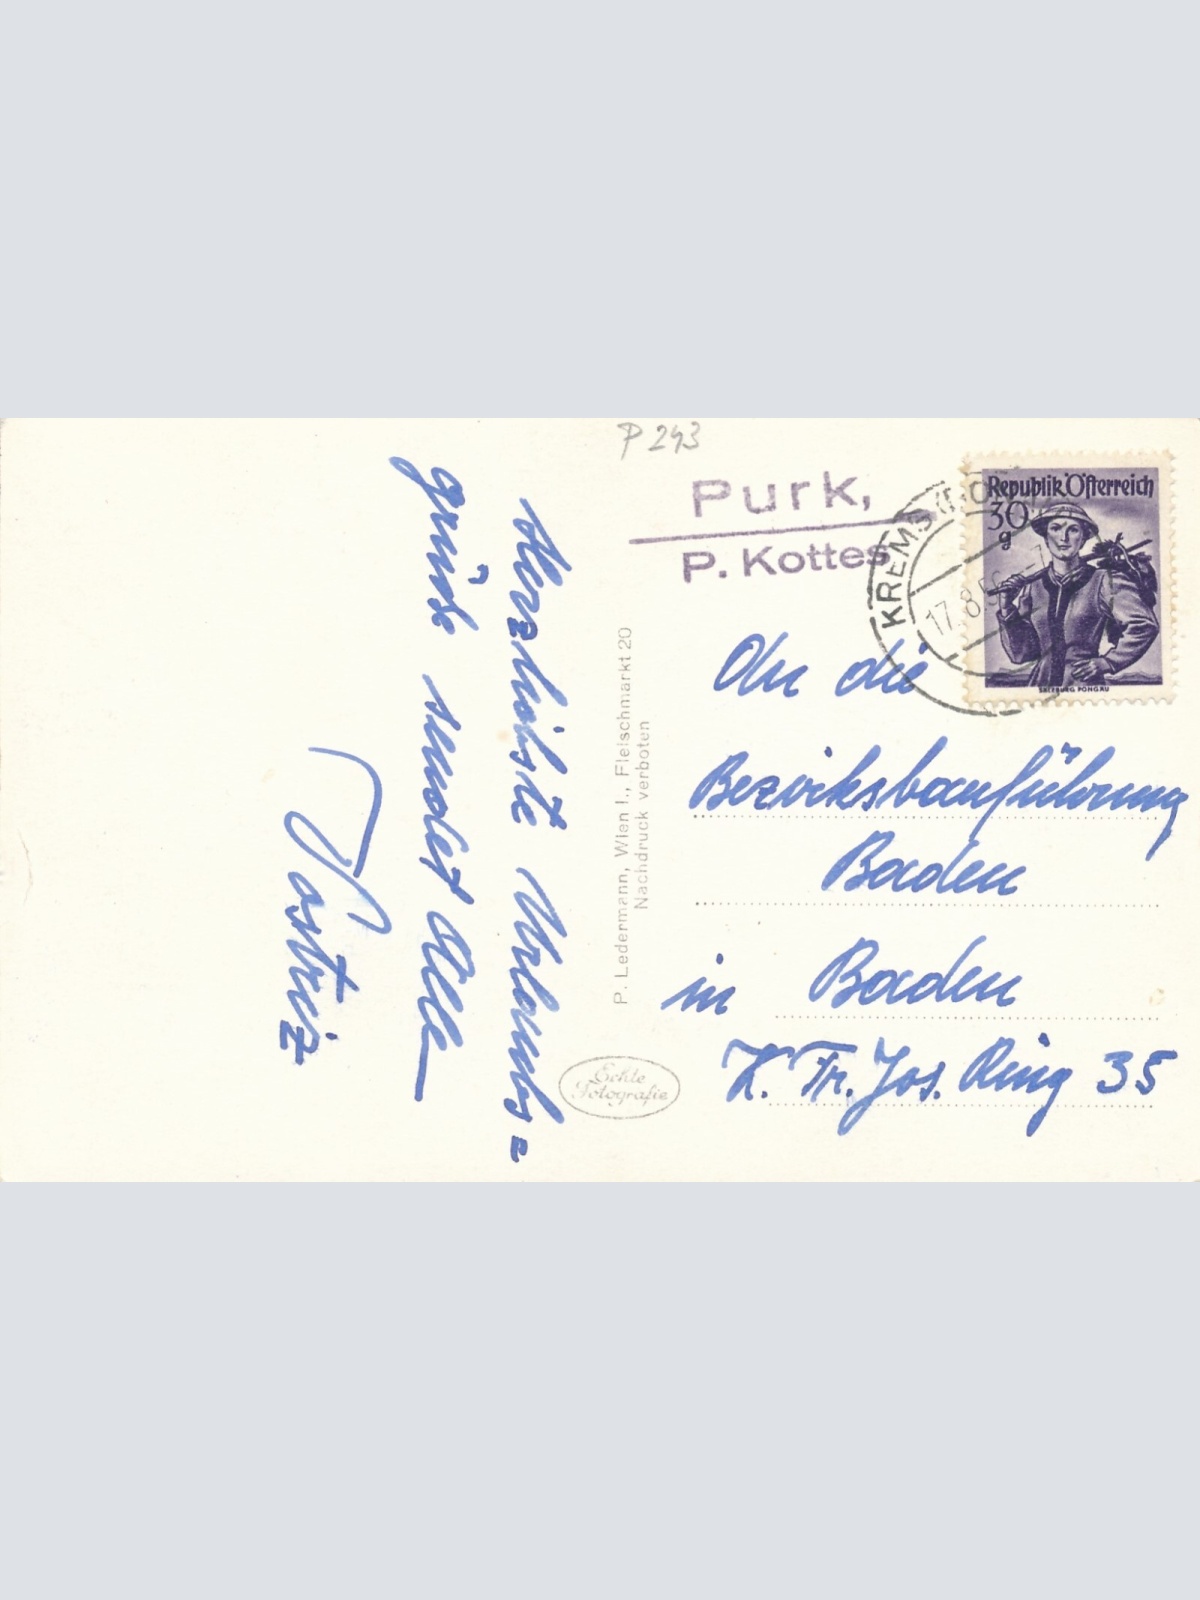 P 243
Purk,
P. Kottes
KREMS
17.8.
Republik Österreich
30
g
SALZBURG PONGAU
An die
Bezirksbauführung
Baden
in Baden
K. Fr. Jos. Ring 35
P. Ledermann, Wien I., Fleischmarkt 20
Nachdruck verboten
Echte
Fotografie
Herzlichste Urlaubs=
grüße sendet Alle